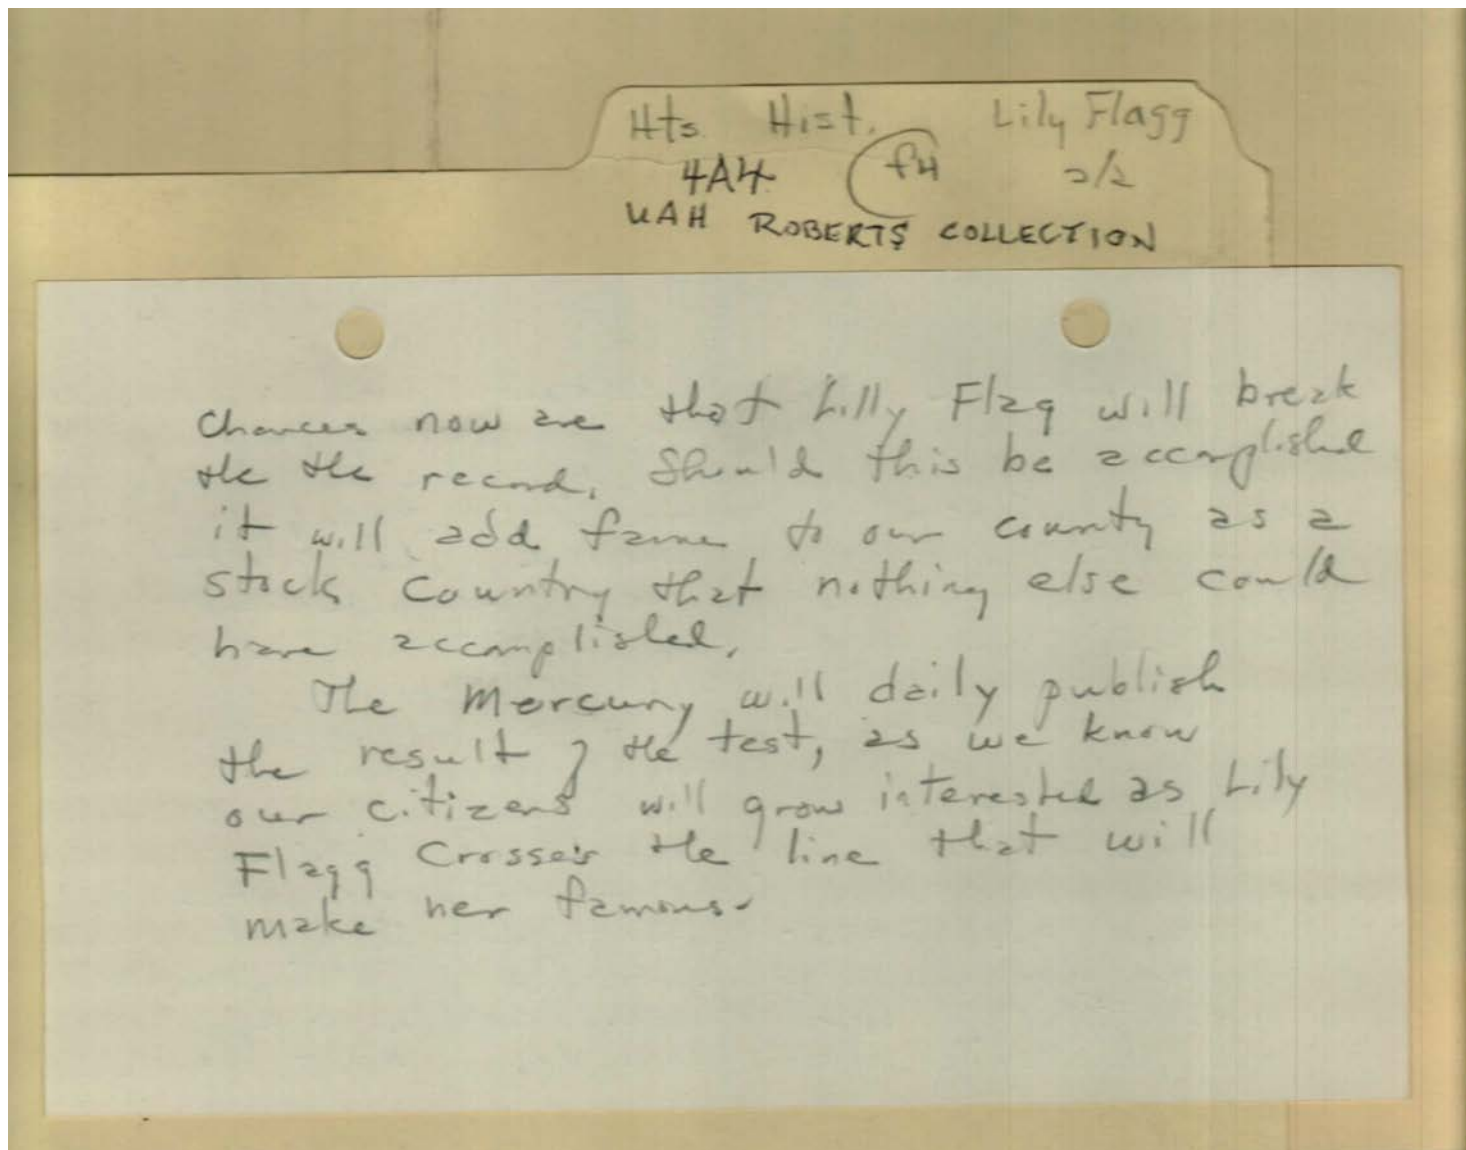 Hts Hist. Lily Flagg
4A4 f4 2/2
UAH ROBERTS COLLECTION
Chances now are that Lilly Flag will break
the the record. Should this be accomplished
it will add fame to our county as a
stock country that nothing else could
have accomplished.
The Mercury will daily publish
the result of the test, as we know
our citizens will grow interested as Lily
Flagg crosses the line that will
make her famous.